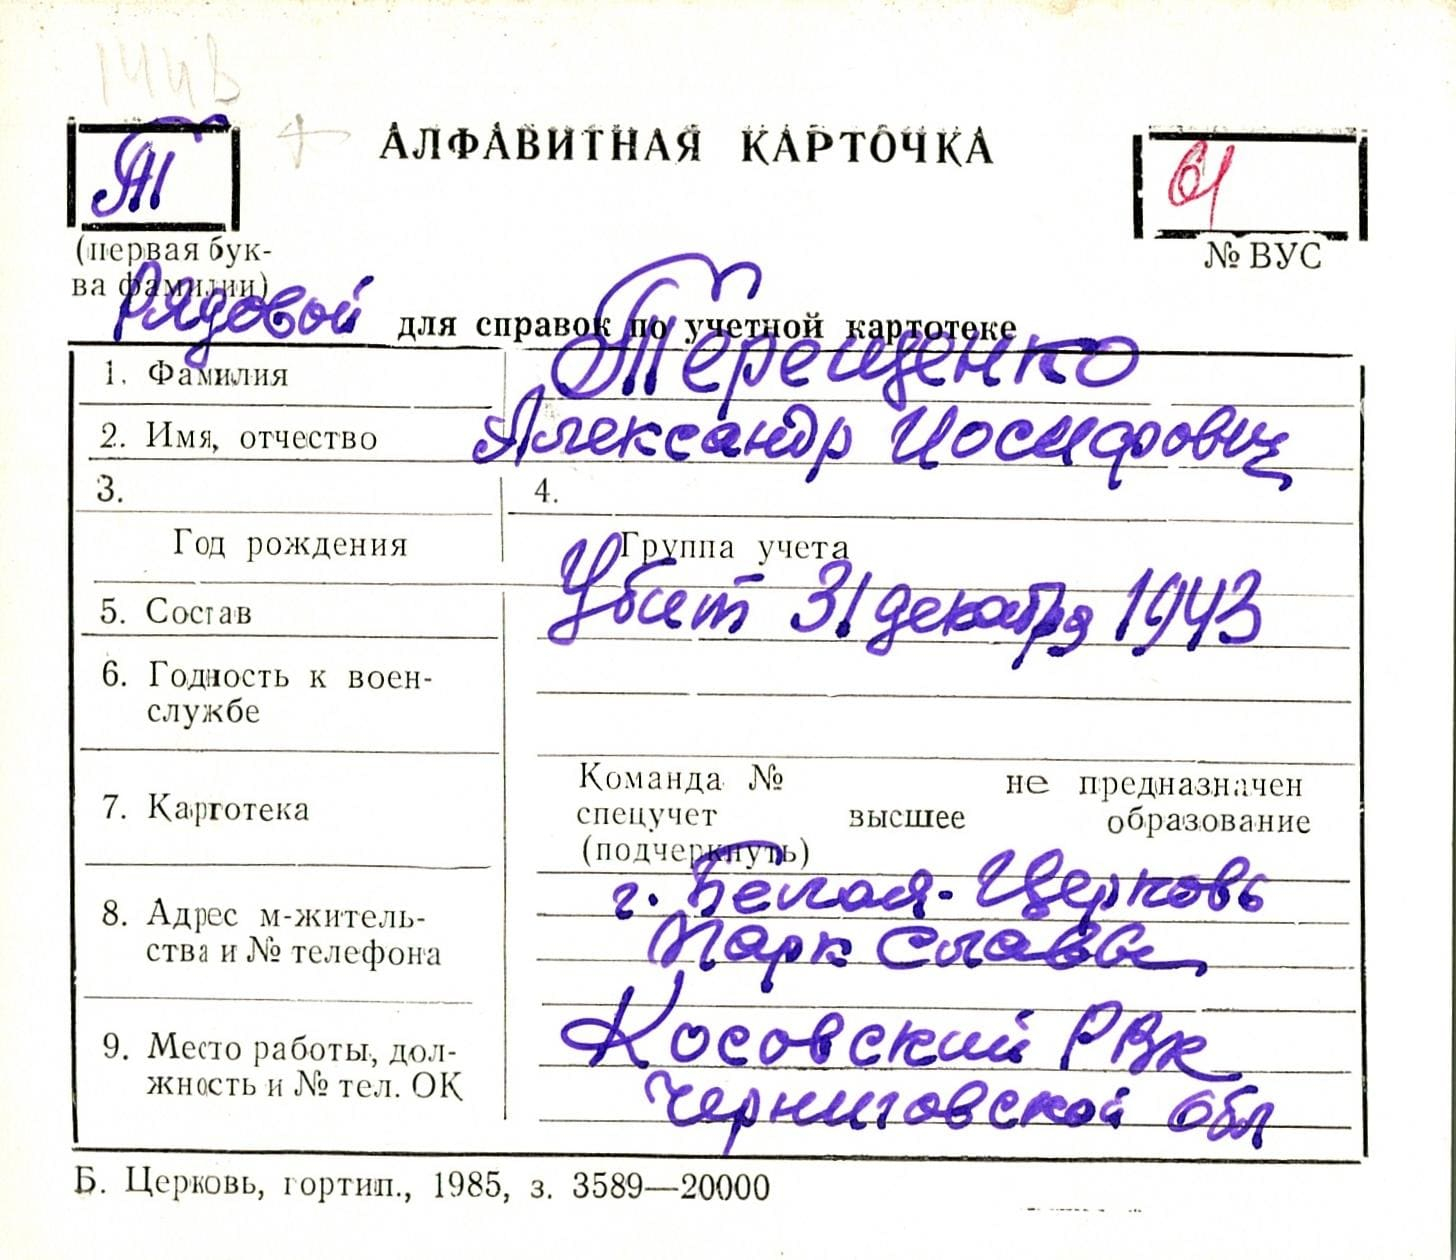 144в
АЛФАВИТНАЯ КАРТОЧКА
Т
61
(первая бук-
ва фамилии)
№ ВУС
Рядовой
для справок по учетной картотеке
1. Фамилия Терещенко
2. Имя, отчество Александр Иосифович
3.
4.
Год рождения
Группа учета
5. Состав Убит 31 декабря 1943
6. Годность к воен-
службе
7. Картотека
Команда № не предназначен
спецучет высшее образование
(подчеркнуть)
8. Адрес м-житель-
ства и № телефона
г. Белая-Церковь
Парк Славы
9. Место работы, дол-
жность и № тел. ОК
Косовский РВК
Черниговской обл
Б. Церковь, гортип., 1985, з. 3589—20000